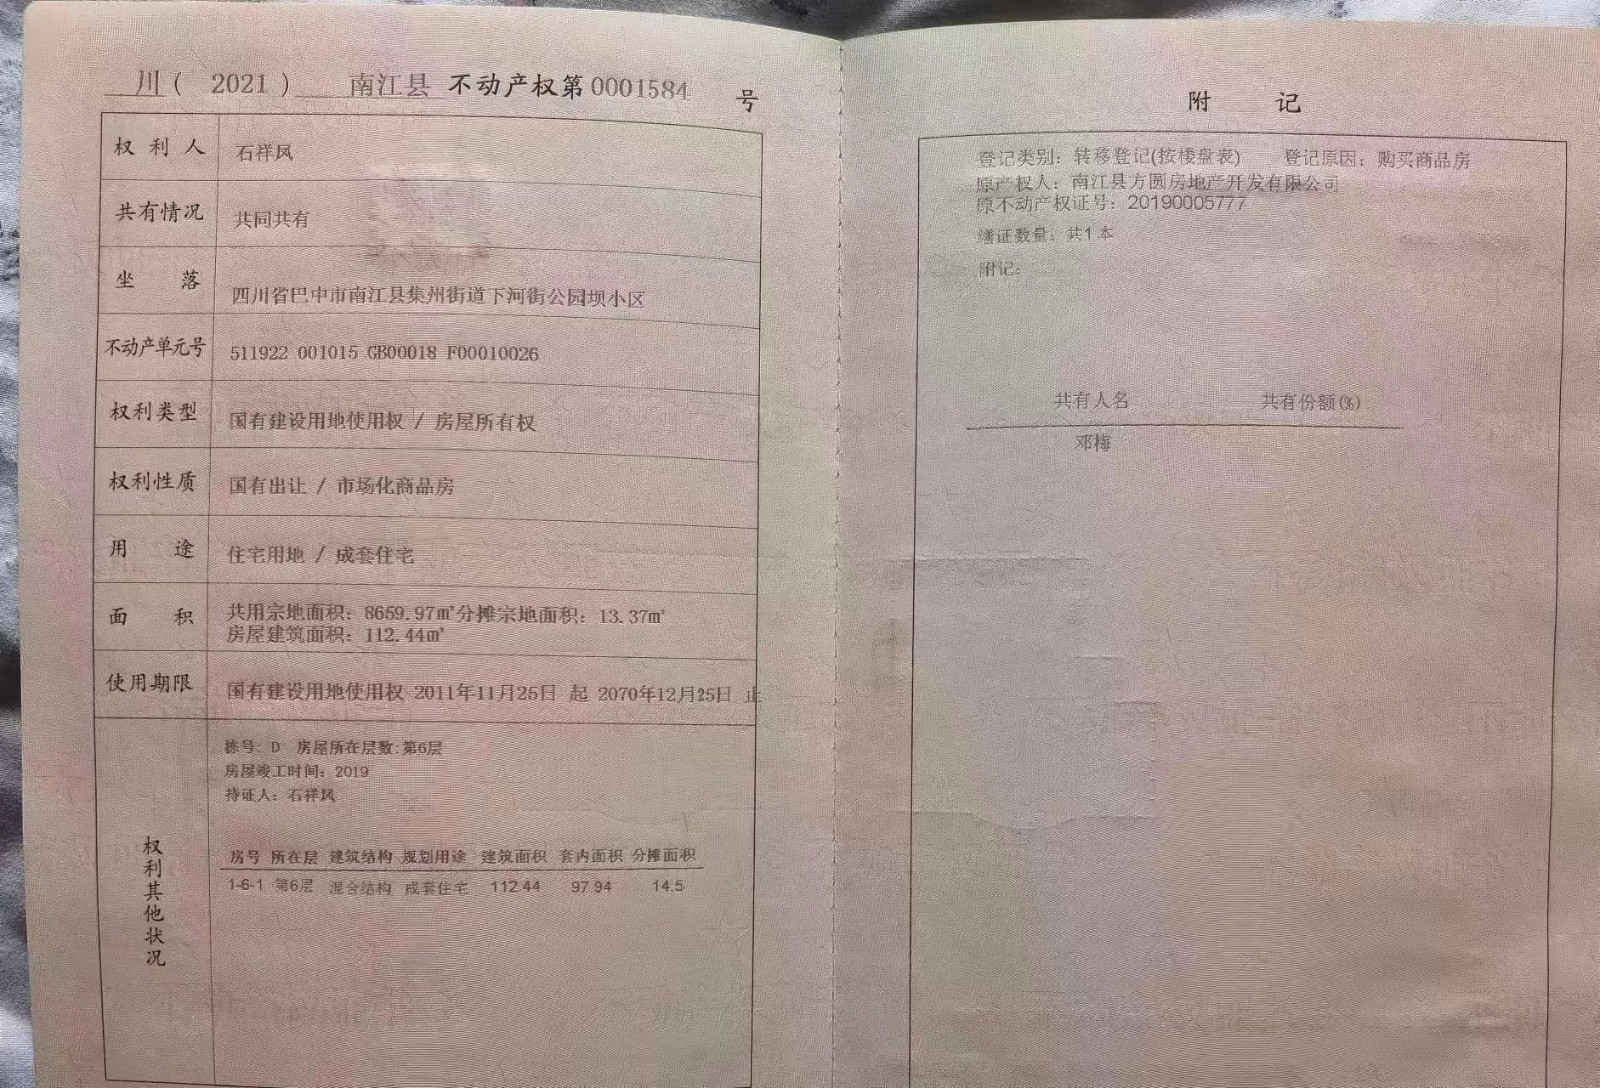 川（ 2021 ） 南江县 不动产权第0001584 号
权利人 石祥凤
共有情况 共同共有
坐落 四川省巴中市南江县集州街道下河街公园坝小区
不动产单元号 511922 001015 GB00018 F00010026
权利类型 国有建设用地使用权 / 房屋所有权
权利性质 国有出让 / 市场化商品房
用途 住宅用地 / 成套住宅
面积 共用宗地面积：8659.97㎡分摊宗地面积：13.37㎡
房屋建筑面积：112.44㎡
使用期限 国有建设用地使用权 2011年11月25日 起 2070年12月25日 止
权利其他状况
栋号：D 房屋所在层数：第6层
房屋竣工时间：2019
持证人：石祥凤
房号 所在层 建筑结构 规划用途 建筑面积 套内面积 分摊面积
1-6-1 第6层 混合结构 成套住宅 112.44 97.94 14.5
附记
登记类别：转移登记(按楼盘表) 登记原因：购买商品房
原产权人：南江县方圆房地产开发有限公司
原不动产权证号：20190005777
缮证数量：共1本
附记：
共有人名 共有份额(%)
邓梅